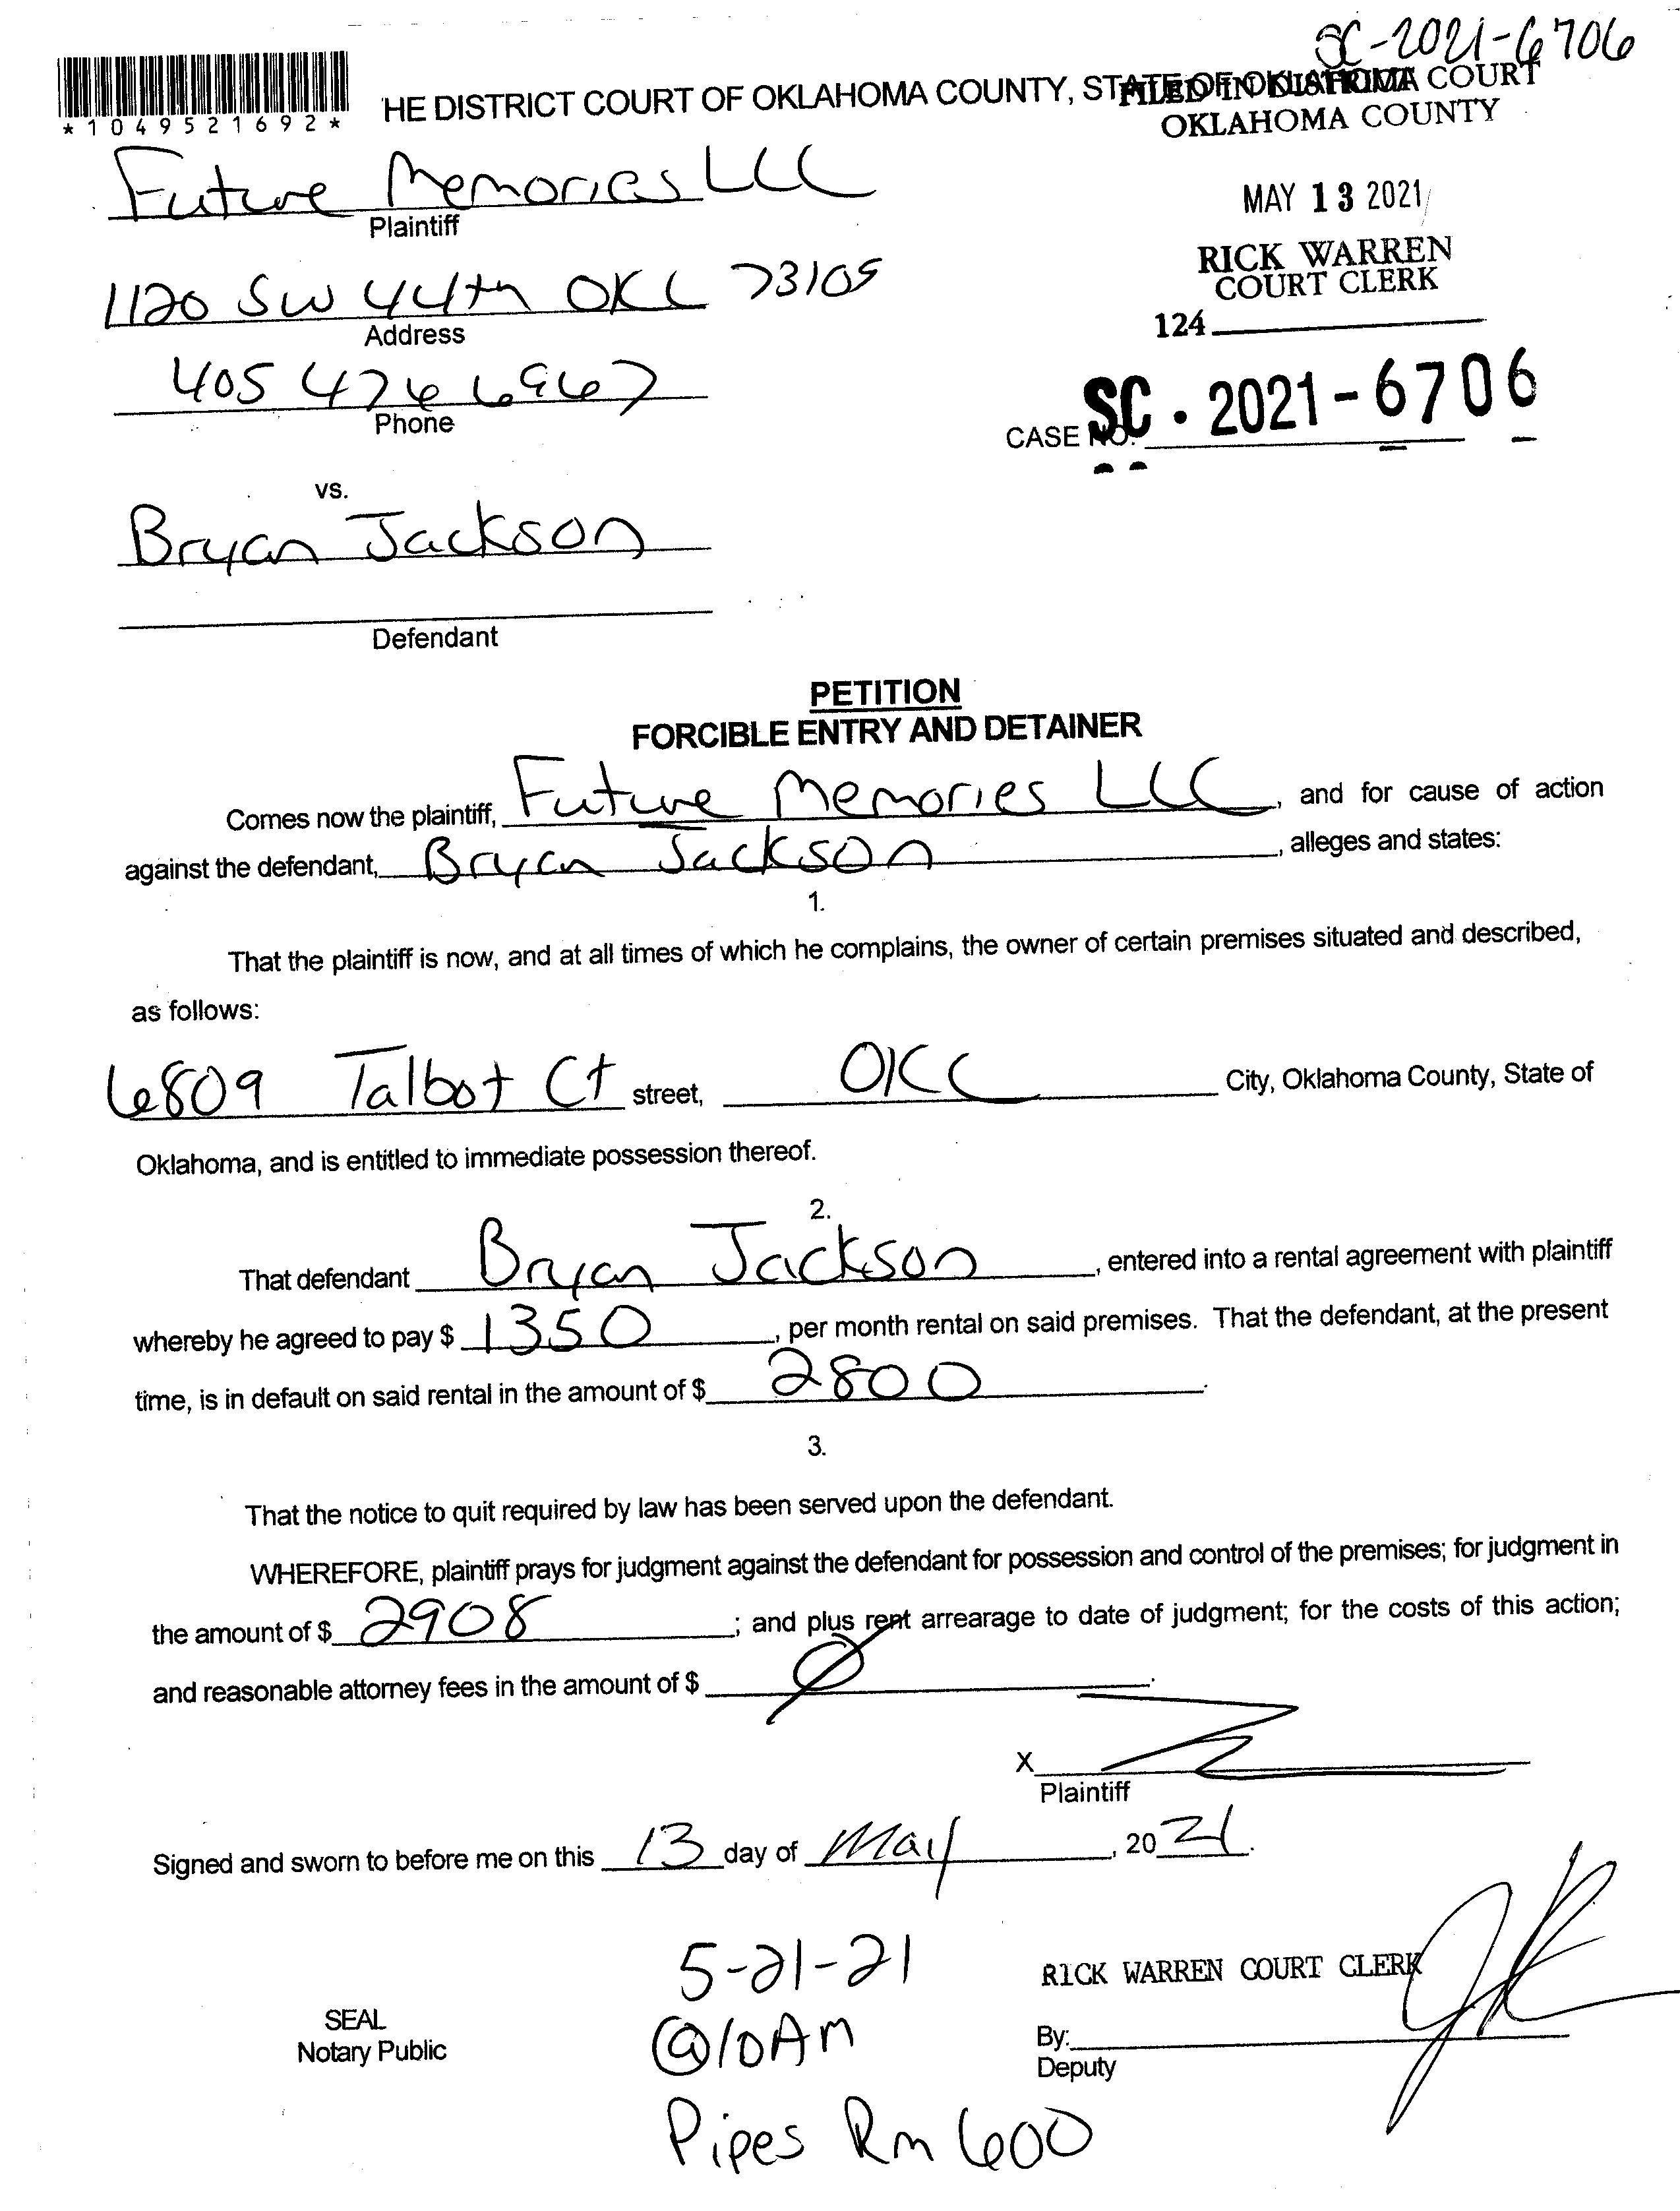 SC-2021-6706
*1049521692*
HE DISTRICT COURT OF OKLAHOMA COUNTY, STATE OF OKLAHOMA
FILED IN DISTRICT COURT
OKLAHOMA COUNTY
Future Memories LLC
Plaintiff
MAY 13 2021
RICK WARREN
COURT CLERK
124
1120 SW 44th OKC 73109
Address
405 476 6967
Phone
CASE NO. SC - 2021-6706
vs.
Bryan Jackson
Defendant
PETITION
FORCIBLE ENTRY AND DETAINER
Comes now the plaintiff, Future Memories LLC, and for cause of action
against the defendant, Bryan Jackson, alleges and states:
1.
That the plaintiff is now, and at all times of which he complains, the owner of certain premises situated and described,
as follows:
6809 Talbot Ct street, OKC City, Oklahoma County, State of
Oklahoma, and is entitled to immediate possession thereof.
2.
That defendant Bryan Jackson, entered into a rental agreement with plaintiff
whereby he agreed to pay $ 1350, per month rental on said premises. That the defendant, at the present
time, is in default on said rental in the amount of $ 2800.
3.
That the notice to quit required by law has been served upon the defendant.
WHEREFORE, plaintiff prays for judgment against the defendant for possession and control of the premises; for judgment in
the amount of $ 2908; and plus rent arrearage to date of judgment; for the costs of this action;
and reasonable attorney fees in the amount of $ Ø.
X
Plaintiff
Signed and sworn to before me on this 13 day of May, 2021.
5-21-21
@10AM
Pipes Rm 600
SEAL
Notary Public
RICK WARREN COURT CLERK
By:
Deputy